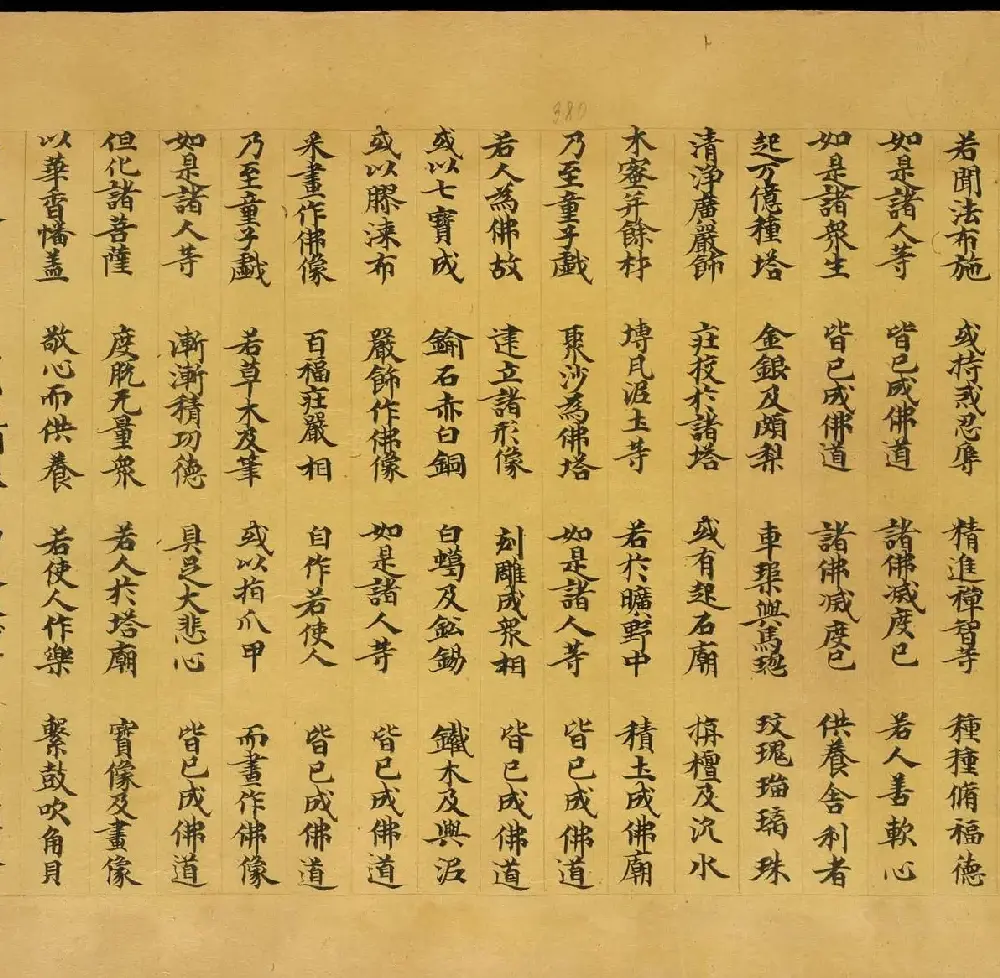 若聞法布施 或持戒忍辱 精進禪智等 種種脩福德
如是諸人等 皆已成佛道 諸佛滅度已 若人善軟心
如是諸衆生 皆已成佛道 諸佛滅度已 供養舍利者
起万億種塔 金銀及頗梨 車𤦲與馬瑙 玫瑰瑠璃珠
清淨廣嚴飾 莊挍於諸塔 或有起石廟 栴檀及沉水
木櫁并餘材 塼瓦泥土等 若於曠野中 積土成佛廟
乃至童子戲 聚沙為佛塔 如是諸人等 皆已成佛道
若人為佛故 建立諸形像 刻雕成衆相 皆已成佛道
或以七寶成 鍮石赤白銅 白鑞及鉛錫 鐵木及與泥
或以膠漆布 嚴飾作佛像 如是諸人等 皆已成佛道
釆畫作佛像 百福莊嚴相 自作若使人 皆已成佛道
乃至童子戲 若草木及筆 或以指爪甲 而畫作佛像
如是諸人等 漸漸積功德 具足大悲心 皆已成佛道
但化諸菩薩 度脫无量衆 若人於塔廟 寶像及畫像
以華香幡蓋 敬心而供養 若使人作樂 擊鼓吹角貝
380